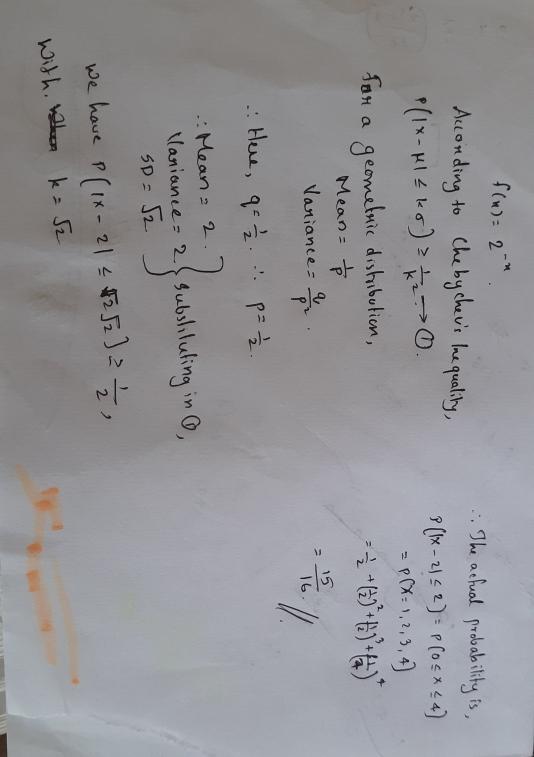 f(x) = 2^-x.
According to Chebychev's Inequality,
P(|x - μ| ≤ kσ) ≥ 1/k² → ①.
For a geometric distribution,
Mean = 1/p
Variance = q/p².
∴ Here, q = 1/2. ∴ p = 1/2.
∴ Mean = 2.
Variance = 2 } Substituting in ①,
SD = √2
We have P(|x - 2| ≤ √2√2) ≥ 1/2,
With k = √2
∴ The actual probability is,
P(|x - 2| ≤ 2) = P(0 ≤ x ≤ 4)
= P(X = 1, 2, 3, 4)
= 1/2 + (1/2)² + (1/2)³ + (1/2)⁴
= 15/16. //